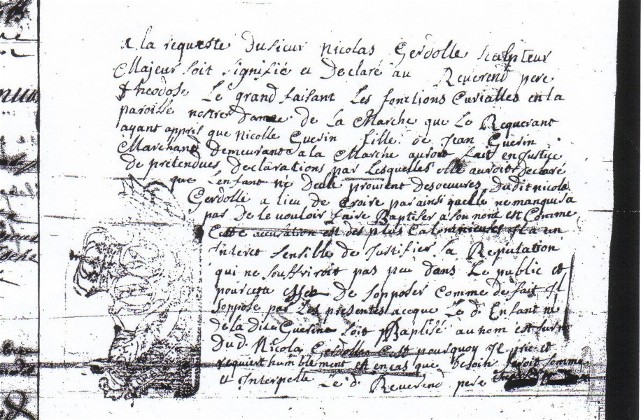 a la requeste Dusieur Nicolas Gerdolle sculpteur
Majeur soit signifié et Declaré au Reverend pere
theodose Le grand faisant Les fonctions Curialles en la
paroisse nostre Dame De La Marche que Le Requerant
ayans appris que Nicolle Guerin fille De Jean Guerin
Marchand Demeurant a la Marche auroit fait en Justice
De pretendues Declarations par Lesquelles elle auroit Declaré
que Lenfant né Delle provient Desoeuvres Dudit nicolas
Gerdolle a lieu de Croire parainsi quelle ne manquera
pas De le vouloir faire Baptiser a son nom et Comme
Cette accusation est des plus Calomnieuses et a un
interet sensible de Justifier sa Reputation
qui ne souffriroit pas peu dans Le public et
pource De sopposer Comme de fait Il
soppose par Les presentes aceque Le d. Enfant né
de la dite Guerin soit Baptisé au nom et
Du d. Nicolas Gerdolle Cest pourquoy Il prie et
requiert humblement et en cas que Besoin seroit somme
et Interpelle Le d. Reverend pere